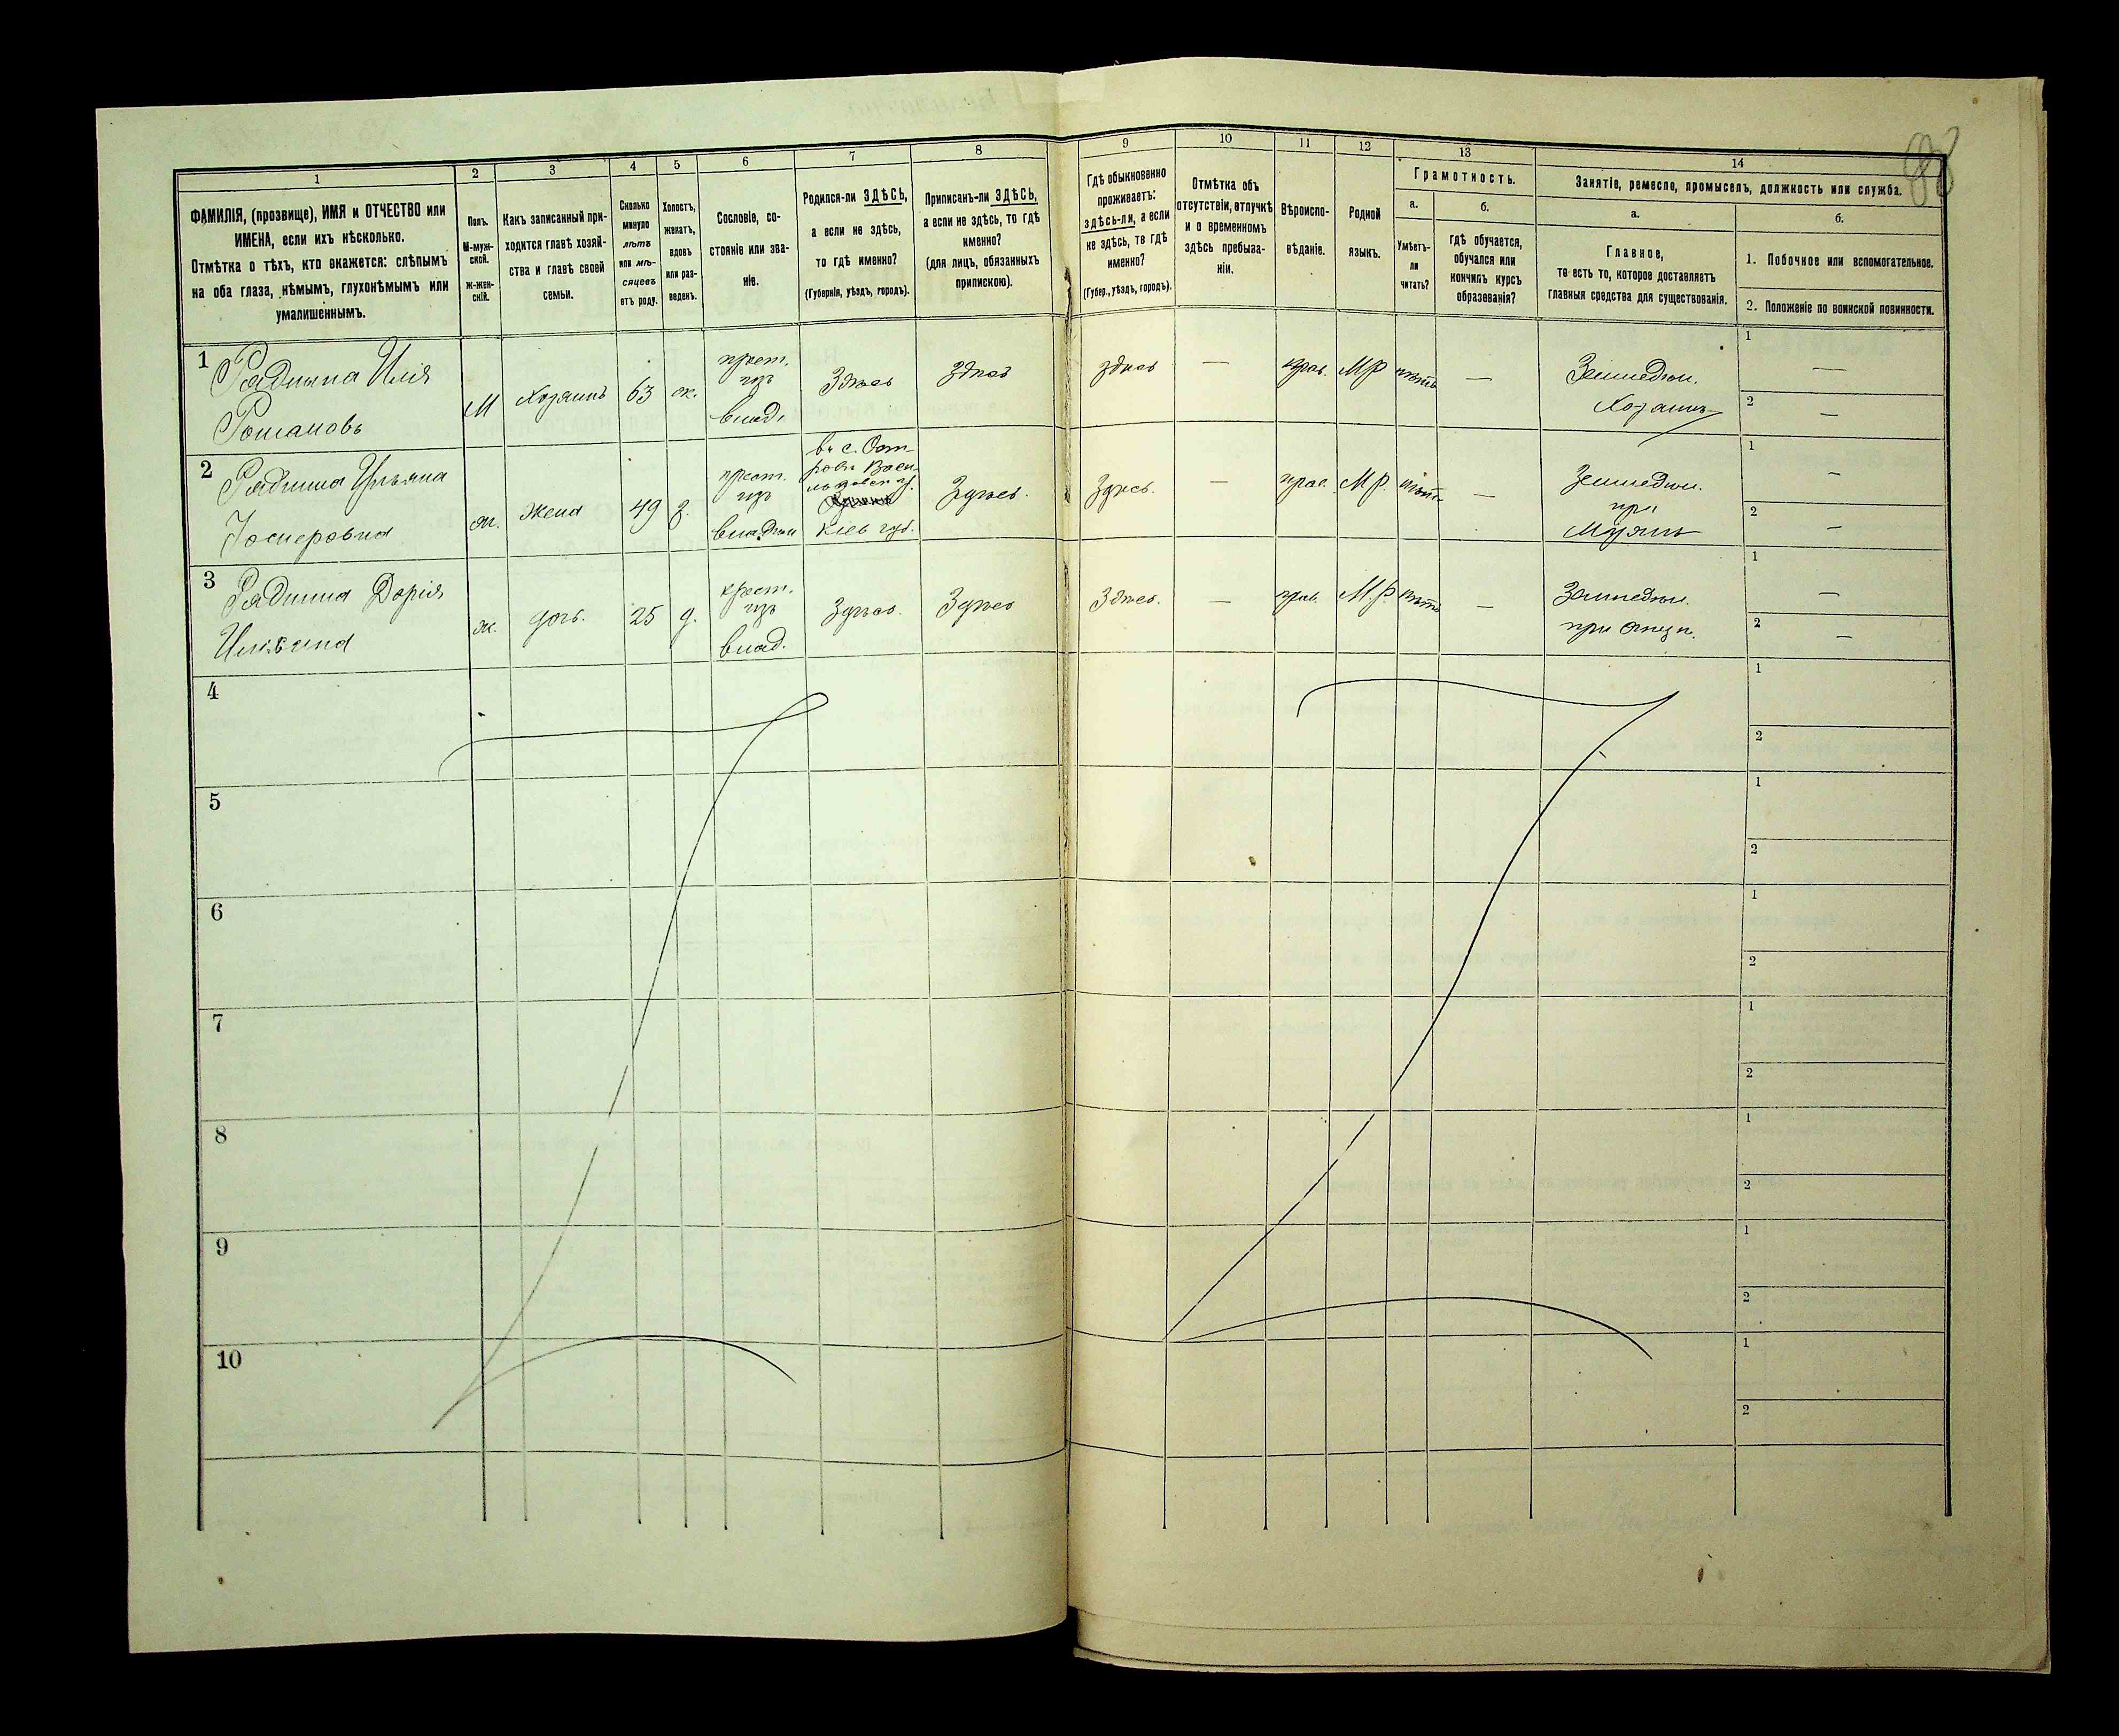 1
2
3
4
5
6
7
8
9
10
11
12
13
14
ФАМИЛІЯ, (прозвище), ИМЯ и ОТЧЕСТВО или
ИМЕНА, если ихъ нѣсколько.
Отмѣтка о тѣхъ, кто окажется: слѣпымъ
на оба глаза, нѣмымъ, глухонѣмымъ или
умалишеннымъ.
Полъ.
М-муж-
ской.
Ж-жен-
скій.
Какъ записанный при-
ходится главѣ хозяй-
ства и главѣ своей
семьи.
Сколько
минуло
лѣтъ
или мѣ-
сяцевъ
отъ роду.
Холостъ,
женатъ,
вдовъ
или раз-
веденъ.
Сословіе, со-
стояніе или зва-
ніе.
Родился-ли ЗДѢСЬ,
а если не здѣсь,
то гдѣ именно?
(Губернія, уѣздъ, городъ).
Приписанъ-ли ЗДѢСЬ,
а если не здѣсь, то гдѣ
именно?
(для лицъ, обязанныхъ
припискою).
Гдѣ обыкновенно
проживаетъ:
здѣсь-ли, а если
не здѣсь, то гдѣ
именно?
(Губер., уѣздъ, городъ).
Отмѣтка объ
отсутствіи, отлучкѣ
и о временномъ
здѣсь пребыва-
ніи.
Вѣроиспо-
вѣданіе.
Родной
языкъ.
Грамотность.
а.
Умѣетъ-
ли
читать?
б.
гдѣ обучается,
обучался или
кончилъ курсъ
образованія?
Занятіе, ремесло, промыселъ, должность или служба.
а.
Главное,
то есть то, которое доставляетъ
главныя средства для существованія.
б.
1. Побочное или вспомогательное.
2. Положеніе по воинской повинности.
1
Илія
Романовъ
М
Хозяинъ
63
ж.
крест.
изъ
влад.
Здѣсь
здѣсь
здѣсь
—
прав.
М Р
нѣтъ
—
Земледѣл.
Хозяинъ
1
—
2
—
2
Ульяна
ж.
жена
49
з.
крест.
изъ
владѣл
въ с. Ост-
ровѣ Васи-
льковск у.
Кіев губ.
Здѣсь.
Здѣсь.
—
прав.
М Р.
нѣтъ
—
Земледѣл.
при
Мужѣ
1
—
2
—
3
Дарія
ж.
дочь.
25
д.
крест.
изъ
влад.
Здѣсь.
Здѣсь
Здѣсь.
—
прав.
М. Р.
нѣтъ
—
Земледѣл.
при отцѣ.
1
—
2
—
4
1
2
5
1
2
6
1
2
7
1
2
8
1
2
9
1
2
10
1
2